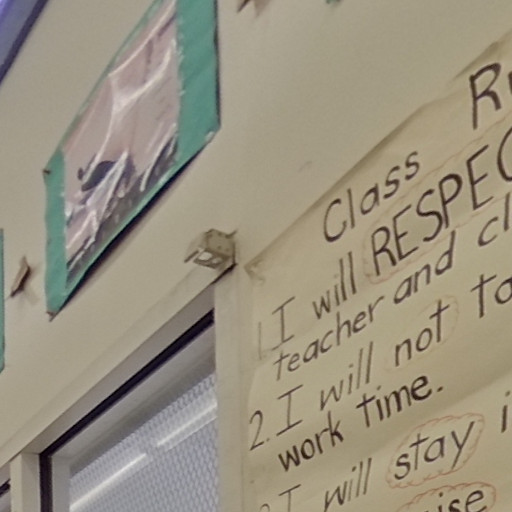 Class
I will RESPEC
teacher and cl
2. I will not ta
work time.
I will stay i